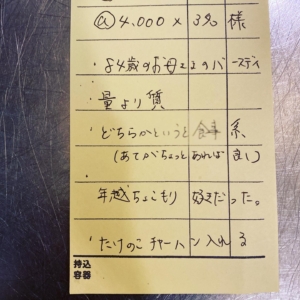 @4.000 × 3名 様
・84歳のお母さまのバースディ
・量より質
・どちらかというと食事系
(あてがちょっとあれば良し)
年越ちょこもり 好きだった。
・たけのこチャーハン入れる
持込
容器